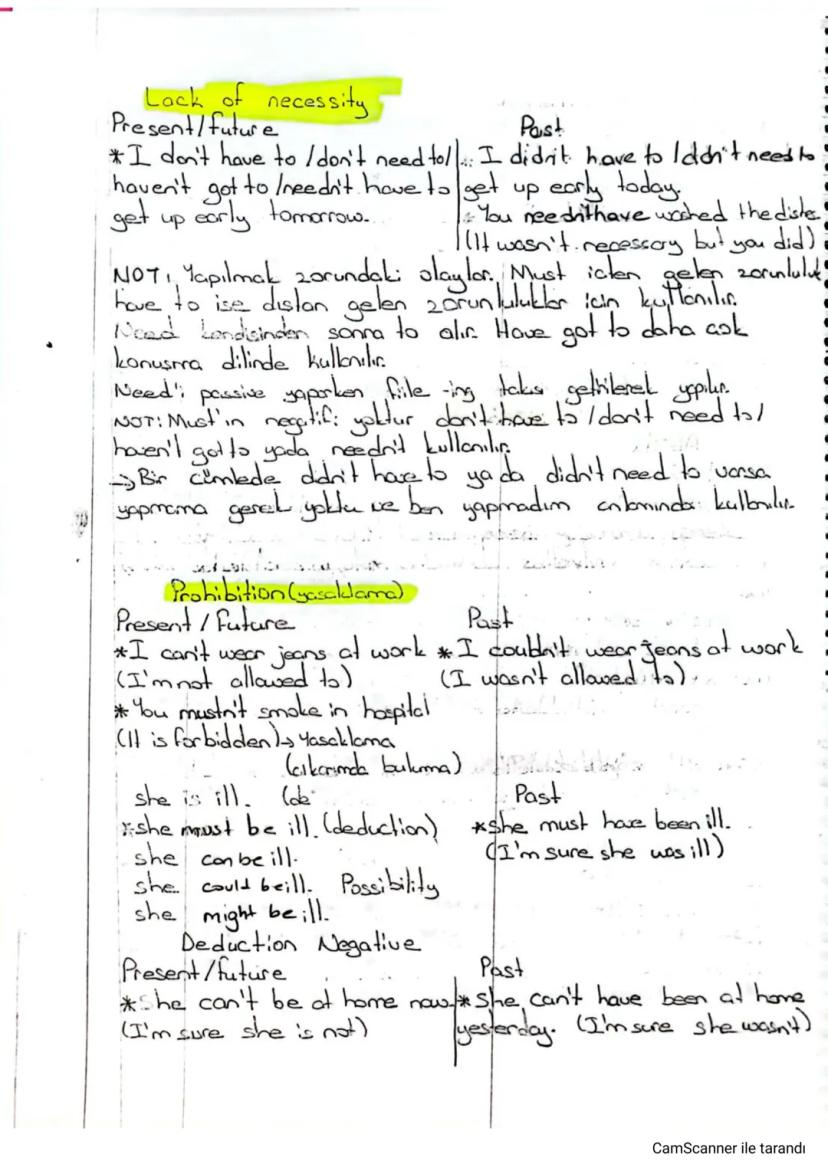 Lack of necessity
Present/future
Past
*I don't have to /don't need to/
haven't got to /needn't have to
get up early tomorrow.
* I didn't have to /ddn't need to
get up early today.
* You needn't have washed the dishe
(It wasn't necessary but you did)
NOT: Yapılmak zorundaki olaylar. Must içten gelen zorunluluk
have to ise dıştan gelen zorunluluklar için kullanılır.
Need kendisinden sonra to alır. Have got to daha çok
konuşma dilinde kullanılır.
Need'i passive yaparken fiile -ing takısı getirilerek yapılır.
NOT: Must'ın negatifi yoktur don't have to /don't need to/
haven't got to yada needn't kullanılır.
→ Bir cümlede didn't have to ya da didn't need to varsa
yapmama gerek yoktu ve ben yapmadım anlamında kullanılır.
Prohibition (yasaklama)
Present / Future
Past
*I can't wear jeans at work
(I'm not allowed to)
* I couldn't wear jeans at work
(I wasn't allowed to)
* You mustn't smoke in hospital
(It is forbidden)→ Yasaklama
(çıkarımda bulunma)
she is ill. (de
Past
*she must be ill. (deduction)
*she must have been ill.
(I'm sure she was ill)
she can be ill.
she could be ill. Possibility
she might be ill.
Deduction Negative
Present/future
Past
*She can't be at home now
(I'm sure she is not)
* She can't have been at home
yesterday. (I'm sure she wasn't)
CamScanner ile tarandı